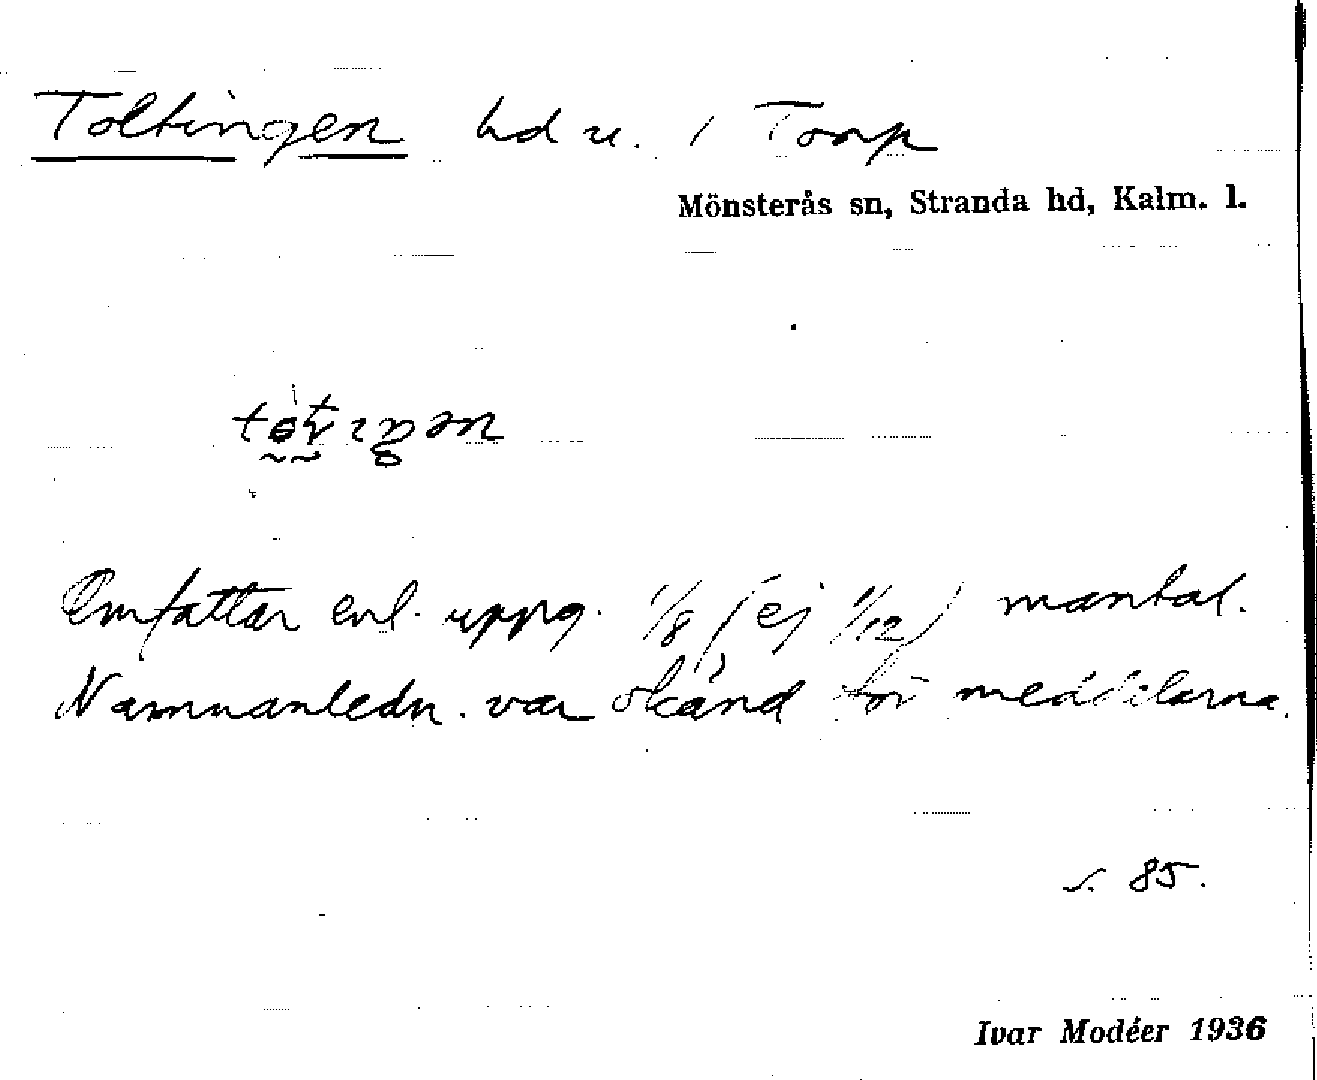 Toltingen hd u. / Torp
Mönsterås sn, Stranda hd, Kalm. l.
Omfattar enl. uppg. 1/8 (ej 1/12) mantal.
Namnanledn. var okänd för meddelarna.
s. 85.
Ivar Modéer 1936